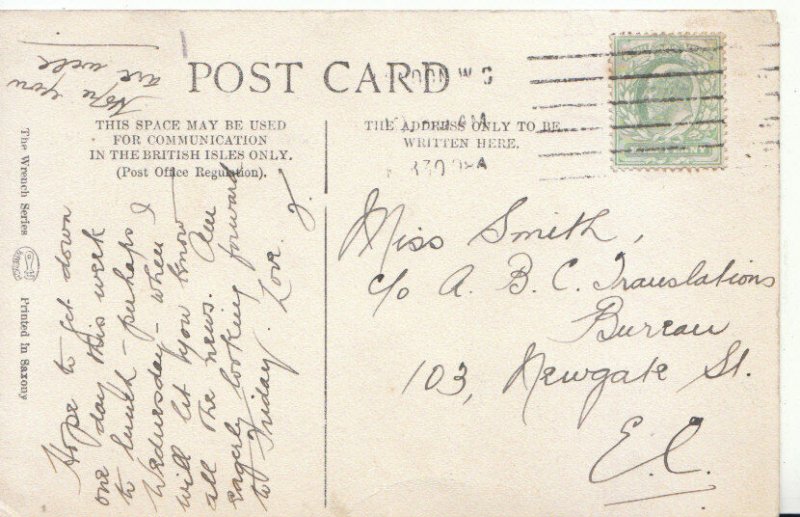 POST CARD
THIS SPACE MAY BE USED
FOR COMMUNICATION
IN THE BRITISH ISLES ONLY.
(Post Office Regulation).
THE ADDRESS ONLY TO BE
WRITTEN HERE.
The Wrench Series
Printed in Saxony
Hope to get down
one day this week
to lunch - perhaps
Wednesday - when I
will let you know
all the news. Am
eagerly looking forward
to Friday. Love. J.
Hope you
are well
Miss Smith,
c/o A. B. C. Translations
Bureau
103, Newgate St.
E.C.